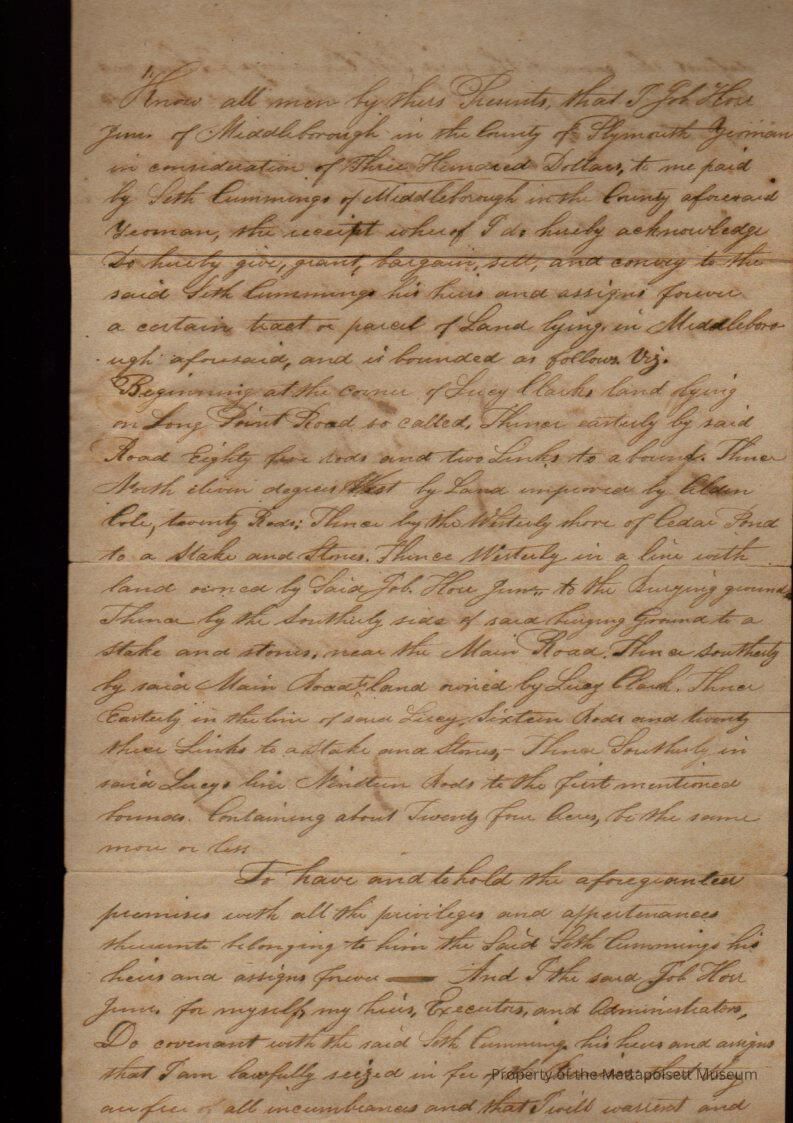 Know all men by thees Presents, that I Job Horr
Junr. of Middleborough in the County of Plymouth Yeoman
in consideration of Three Hundred Dollars, to me paid
by Seth Cummings of Middleborough in the County aforesaid
Yeoman, the receipt whereof I do hereby acknowledge
Do hereby give, grant, bargain, sell, and convey to the
said Seth Cummings his heirs and assigns forever
a certain tract or parcel of Land lying in Middleboro
ugh aforesaid, and is bounded as follows. Viz.
Beginning at the corner of Lucy Clarks land lying
on Long Point Road so called, Thence easterly by said
Road Eighty five rods and two Links to a bound. Thence
North eleven degrees West by Land improved by Alden
Cole, twenty Rods; Thence by the Westerly shore of Cedar Pond
to a Stake and Stones. Thence Westerly in a line with
land owned by Said Job Horr Junr. to the Burying ground
Thence by the Southerly side of said burying Ground to a
stake and stones, near the Main Road. Thence Southerly
by said Main Road to land owned by Lucy Clark. Thence
Easterly in the line of said Lucy, Sixteen Rods and twenty
three Links to a Stake and Stones,- Thence Southerly in
said Lucys line Nineteen Rods to the first mentioned
bounds. Containing about Twenty four Acres, be the same
more or less
To have and to hold the aforegranted
premises with all the privileges and appertenances
thereunto belonging to him the Said Seth Cummings his
heirs and assigns forever — And I the said Job Horr
Junr. for myself, my heirs, Executors, and Administrators,
Do covenant with the said Seth Cummings his heirs and assigns
that I am lawfully seized in fee of the that they
are free of all incumbrances and that I will warrent and
Property of the Mattapoisett Museum